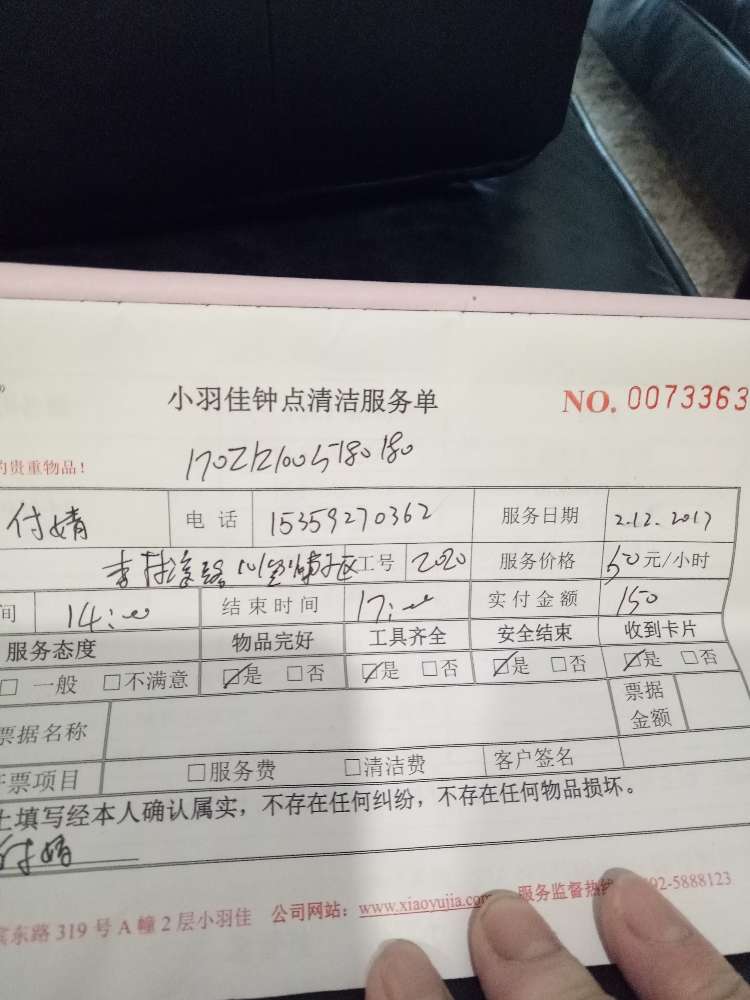 小羽佳钟点清洁服务单 NO. 0073363
的贵重物品!
付婧 电话 15359270362 服务日期 2.12.2017
工号 2020 服务价格 50元/小时
间 14:00 结束时间 17:00 实付金额 150
服务态度 物品完好 工具齐全 安全结束 收到卡片
□ 一般 □不满意 ☑是 □否 ☑是 □否 ☑是 □否 ☑是 □否
票据名称 票据金额
开票项目 □服务费 □清洁费 客户签名
上填写经本人确认属实，不存在任何纠纷，不存在任何物品损坏。
付婧
宾东路 319 号 A 幢 2 层小羽佳 公司网站：www.xiaoyujia.com 服务监督热线 92-5888123